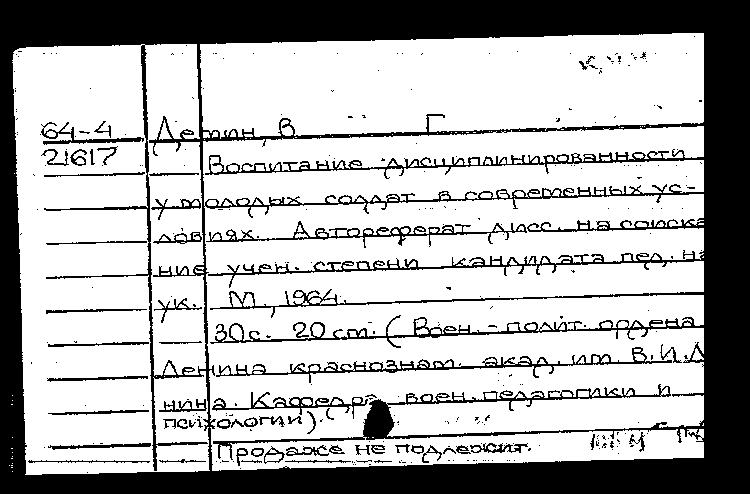 64-4 Детин, В Г
21617 Воспитание дисциплинированности
у молодых солдат в современных ус-
ловиях. Автореферат дисс. на соиска
ние учен. степени кандидата пед. на
ук. М., 1964.
30с. 20 cm. (Воен.-полит. ордена
Ленина краснознам. акад. им В.И.Л
нина. Кафедра воен. педагогики и
психологии).
Продаже не подлежит.